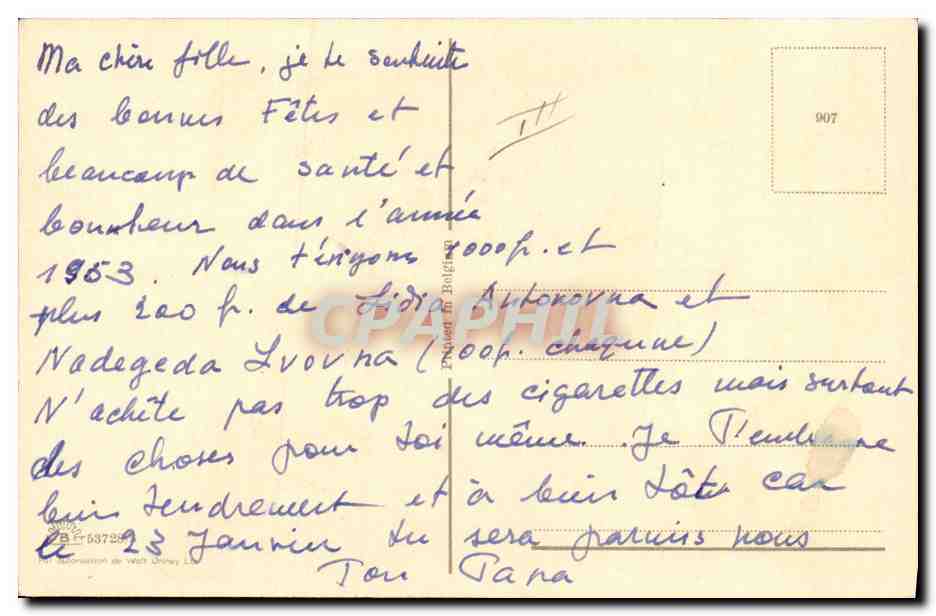 Ma chère fille, je te souhaite
des bonnes Fêtes et
beaucoup de santé et
bonheur dans l'année
1953. Nous t'énvoyons 1000fr. et
plus 200 fr. de Lidia Antonovna et
Nadegeda Lvovna (100fr. chaqune)
N'achête pas trop des cigarettes mais surtout
des choses pour toi même. Je T'embrasse
bien tendrement et à bien tôt car
le 23 Janvier tu sera parmis nous
Ton Papa
907
Printed in Belgium
CPAPHIL
53728
Par autorisation de Walt Disney